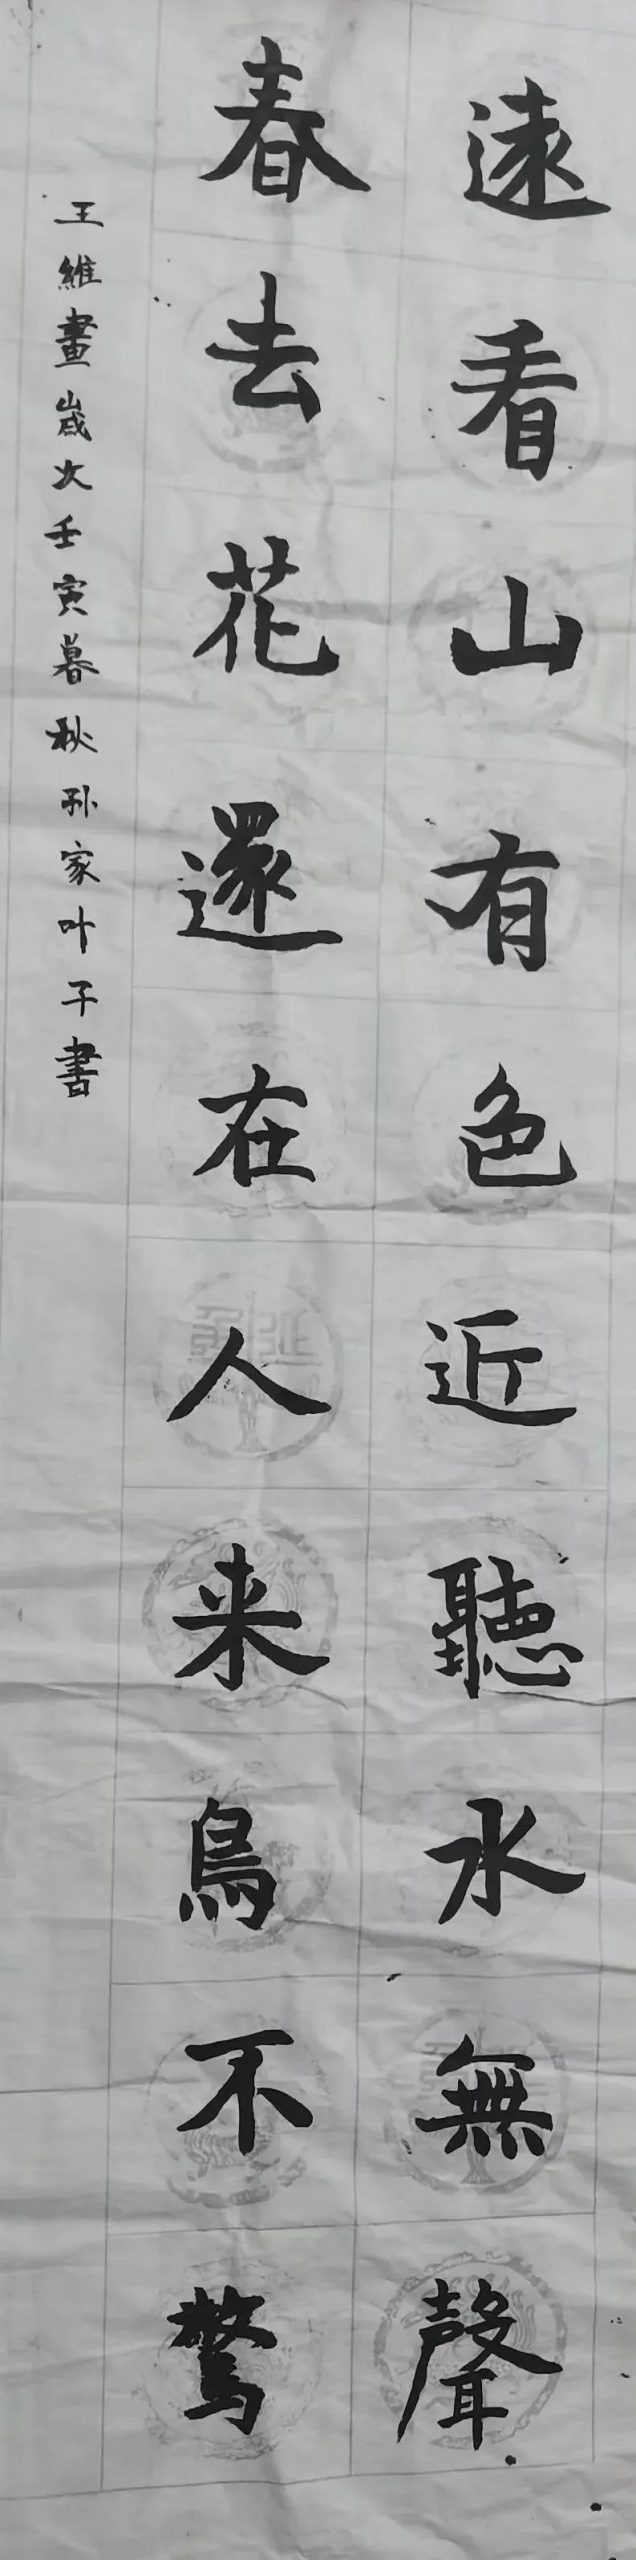 遠看山有色近聽水無聲
春去花還在人来鳥不驚
王維畫歲次壬寅暮秋孙家叶子書